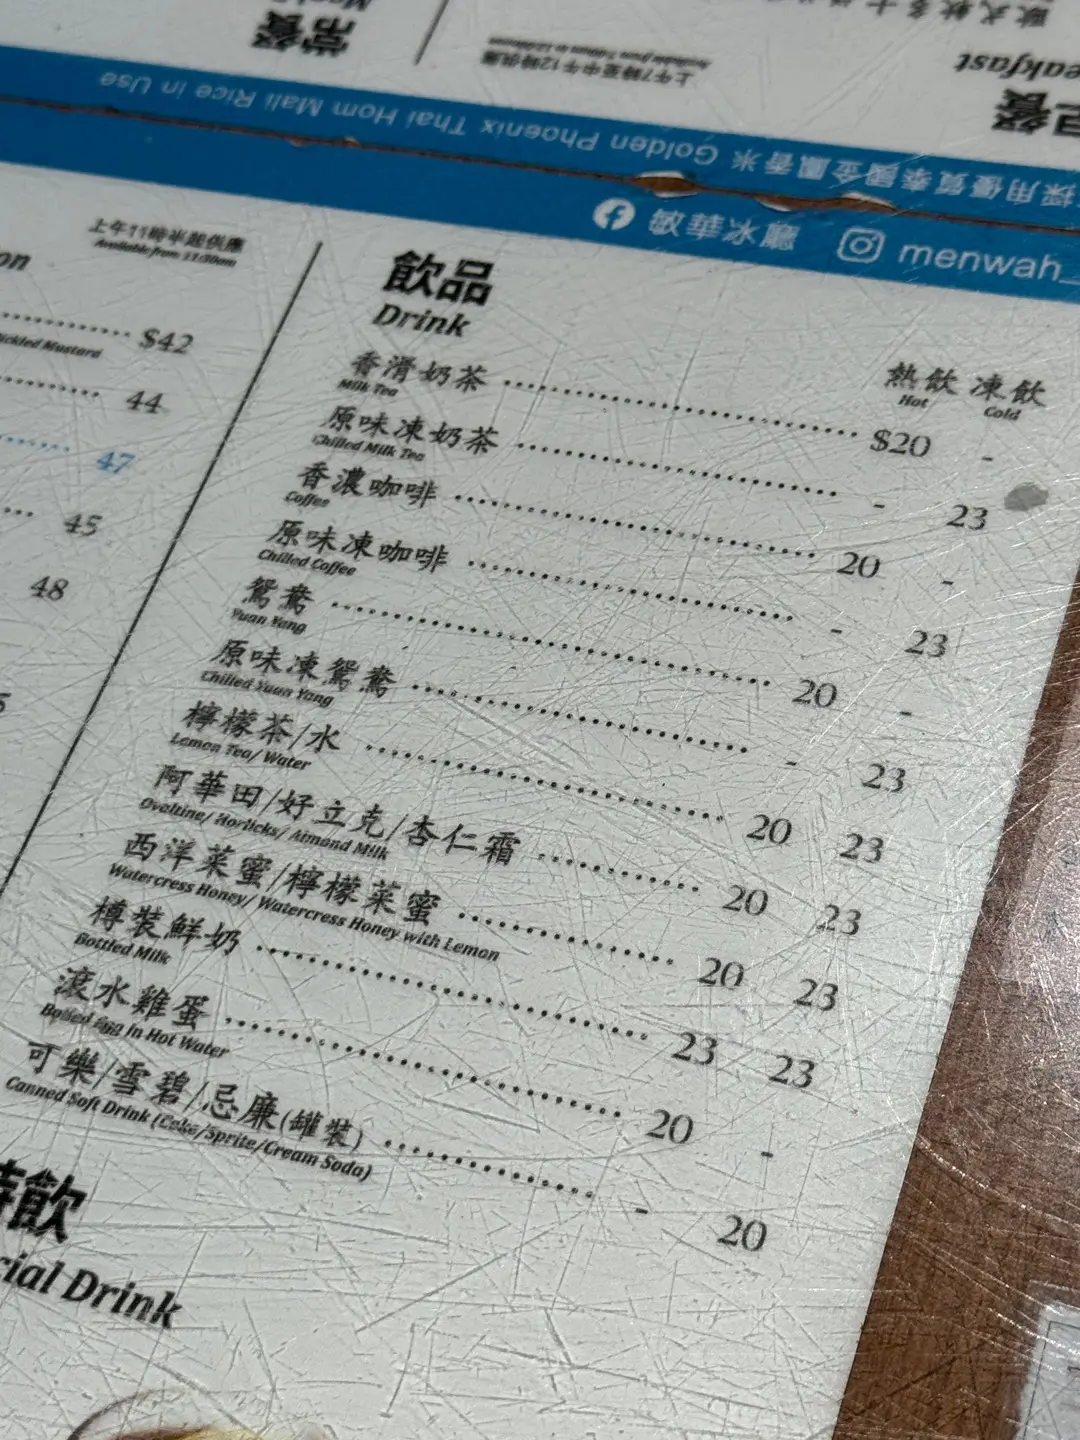 常餐
上午7時至中午12時供應
Available from 7:00am to 12:00noon
採用優質泰國金鳳香米 Golden Phoenix Thai Hom Mali Rice in Use
敏華冰廳 menwah_
上午11時半起供應
Available from 11:30am
on
$42
ickled Mustard
44
47
45
48
飲品
Drink
熱飲 凍飲
Hot Cold
香滑奶茶 $20 -
Milk Tea
原味凍奶茶 - 23
Chilled Milk Tea
香濃咖啡 20 -
Coffee
原味凍咖啡 - 23
Chilled Coffee
鴛鴦 20 -
Yuan Yang
原味凍鴛鴦 - 23
Chilled Yuan Yang
檸檬茶/水 20 23
Lemon Tea/ Water
阿華田/好立克/杏仁霜 20 23
Ovaltine/ Horlicks/ Almond Milk
西洋菜蜜/檸檬菜蜜 20 23
Watercress Honey/ Watercress Honey with Lemon
樽裝鮮奶 23 23
Bottled Milk
滾水雞蛋 20 -
Boiled Egg in Hot Water
可樂/雪碧/忌廉(罐裝) - 20
Canned Soft Drink (Coke/Sprite/Cream Soda)
特飲
cial Drink